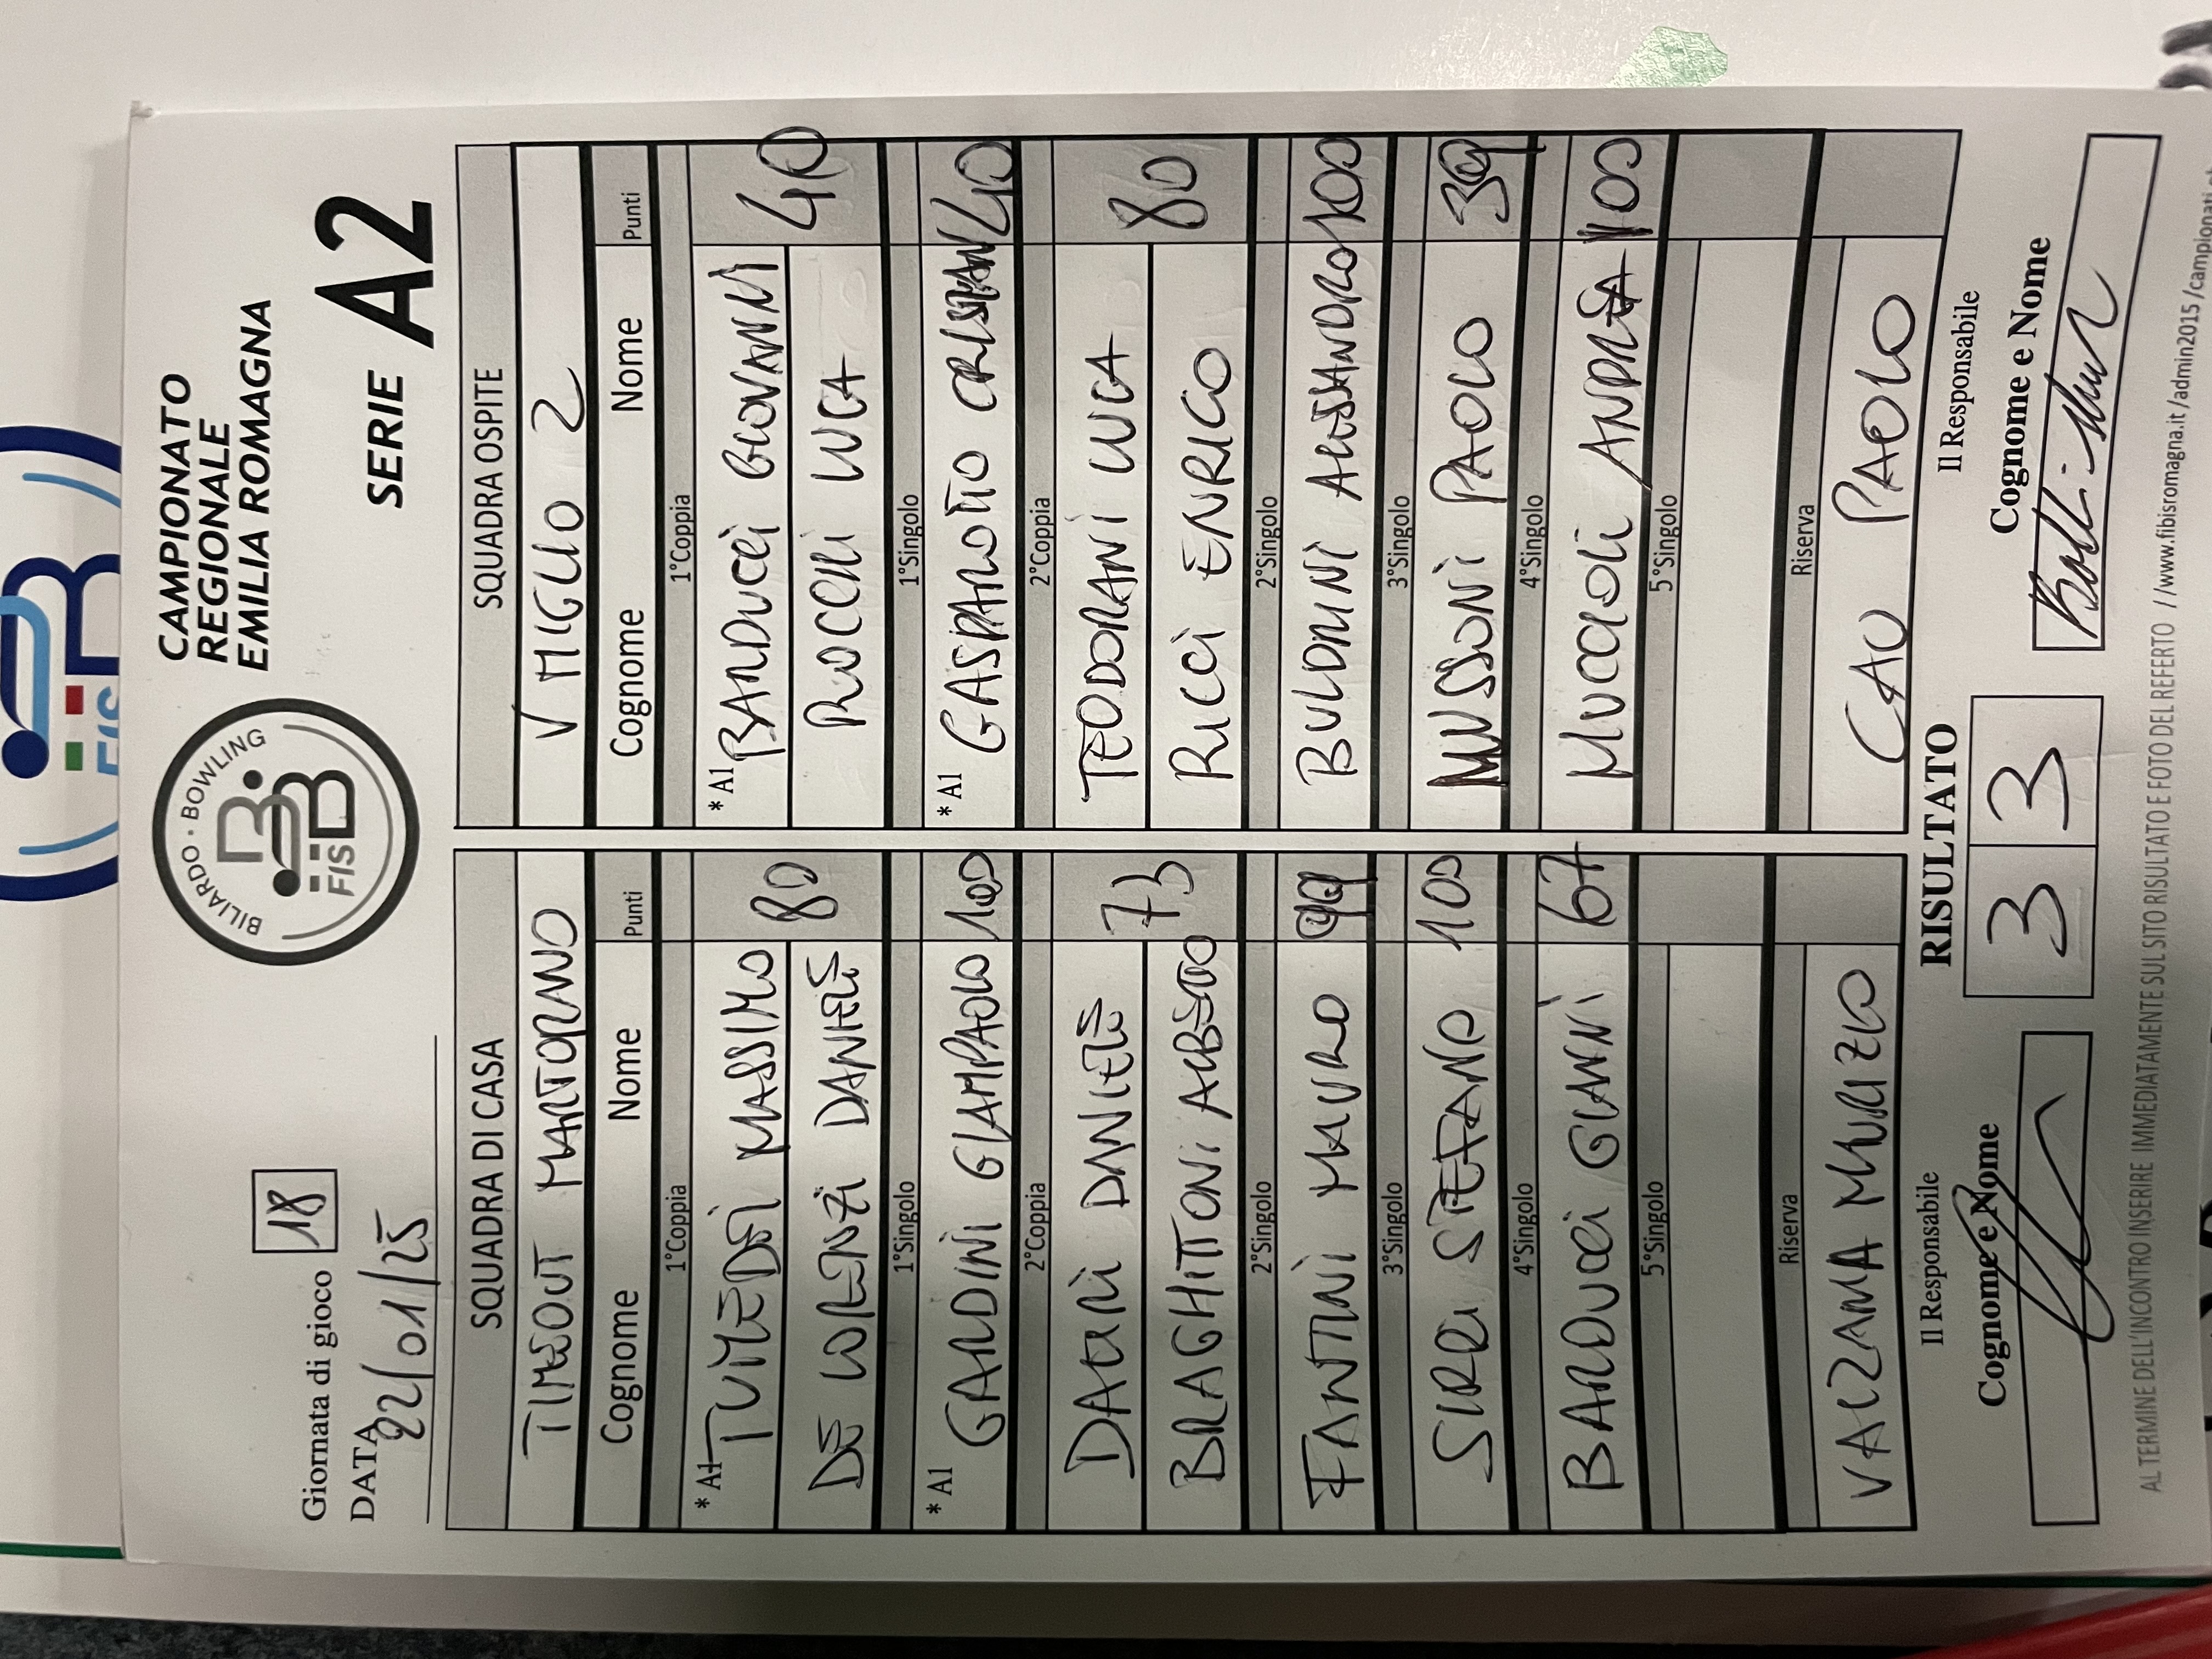 BILIARDO · BOWLING
FISBB
CAMPIONATO
REGIONALE
EMILIA ROMAGNA
Giornata di gioco 18
DATA 22/01/25
SERIE A2
SQUADRA DI CASA
TIMEOUT MARTORANO
Cognome Nome Punti
1°Coppia
*A1 TUMEDEI MASSIMO 80
DE LORENZI DANIELE
1°Singolo
*A1 GARDINI GIAMPAOLO 100
2°Coppia
DALRI DANIELE 73
BRAGHITTONI ALBERTO
2°Singolo
FANTINI MAURO 99
3°Singolo
SIRRI STEFANO 100
4°Singolo
BARDUCCI GIANNI 67
5°Singolo
Riserva
VALZANIA MAURIZIO
SQUADRA OSPITE
V MIGLIO 2
Cognome Nome Punti
1°Coppia
*A1 BARDUCCI GIOVANNI 40
ROCCHI LUCA
1°Singolo
*A1 GASPAROTTO CRISTIAN 40
2°Coppia
TEODORANI LUCA 80
RICCI ENRICO
2°Singolo
BULDRINI ALESSANDRO 100
3°Singolo
MUSSONI PAOLO 39
4°Singolo
MUCCIOLI ANDREA 100
5°Singolo
Riserva
CAU PAOLO
Il Responsabile
RISULTATO
Il Responsabile
Cognome e Nome
3 3
Cognome e Nome
AL TERMINE DELL'INCONTRO INSERIRE IMMEDIATAMENTE SUL SITO RISULTATO E FOTO DEL REFERTO //www.fibisromagna.it/admin2015/campionati